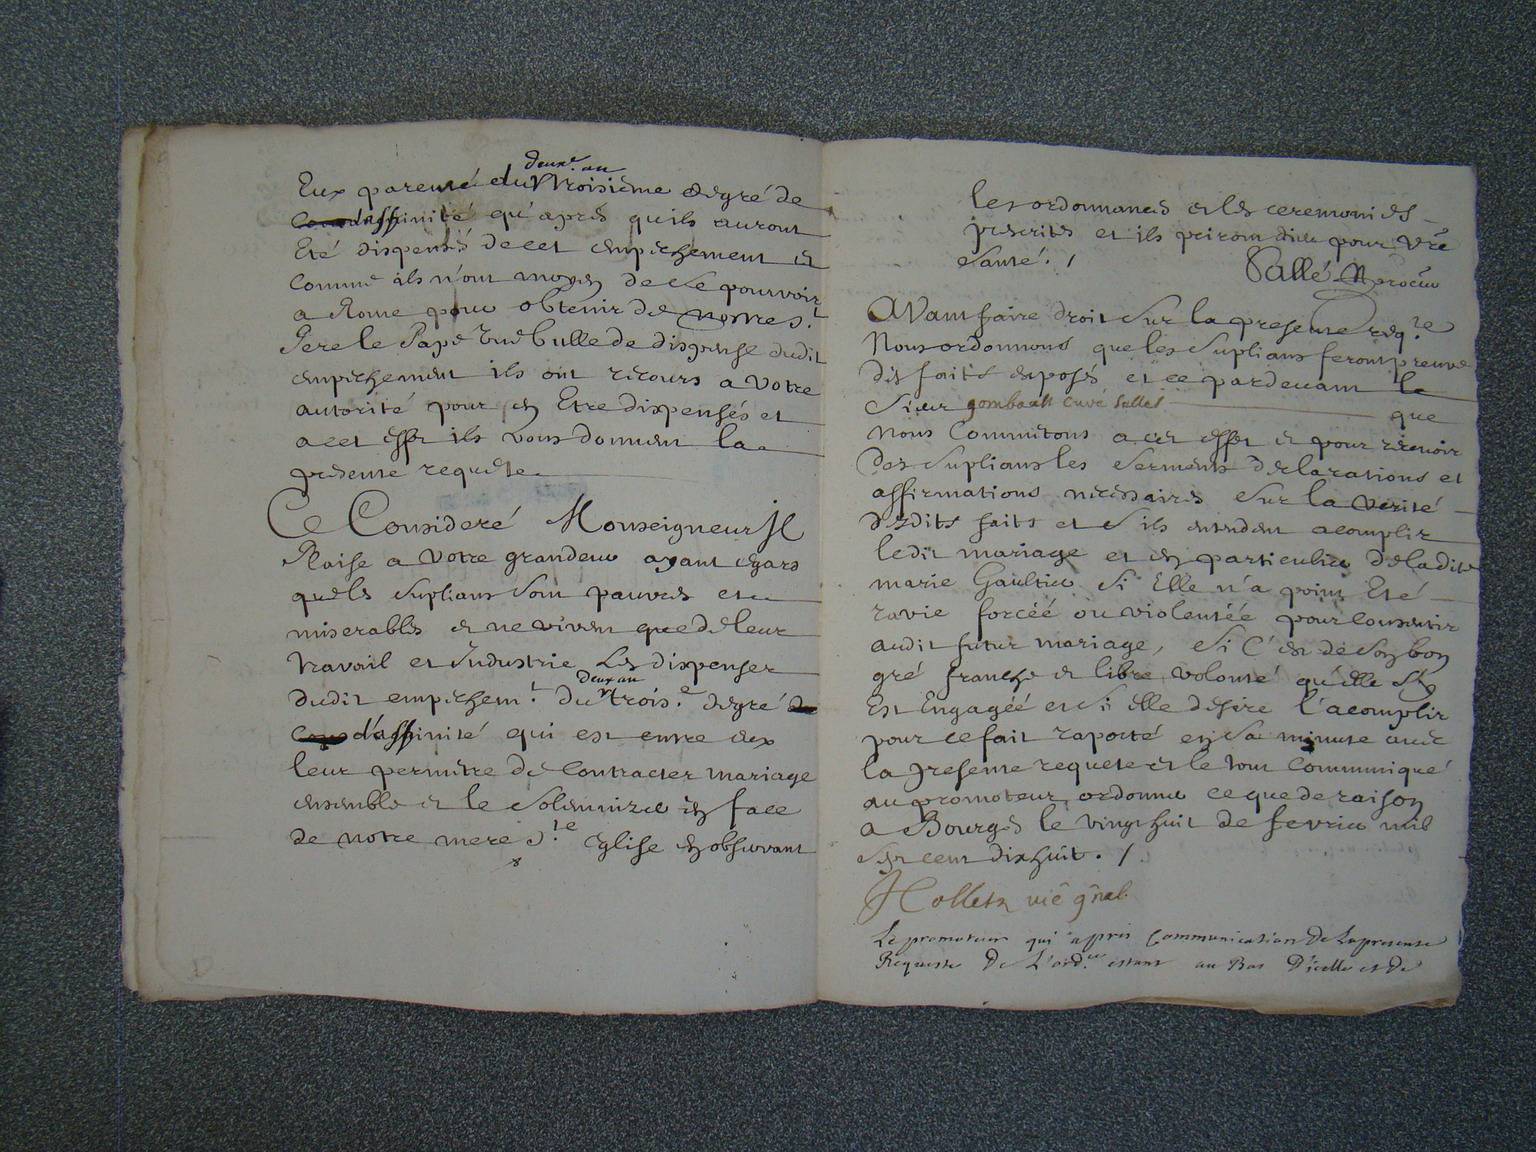 Eux parenté du deuxe. au troisième degré de
d'affinité qu'apres quils auront
Eté dispensés de cet empechement et
Comme ils n'ont moyen de se pourvoir
a Rome pour obtenir de nostre St.
Pere le Pape une bulle de dispense dudit
empechement ils ont recours a Votre
autorité pour en Etre dispensés et
a cet effet ils vous donnent la
presente requeste
Ce Consideré Monseigneur Il
Plaise a Votre grandeur ayant egard
que les suplians sont pauvres et
miserables et ne vivent que de leur
travail et Industrie Les dispenser
dudit empechemt. Du deux au trois.e degré de
d'affinité qui est entre eux
leur permetre de Contracter mariage
ensemble et le solemnizer en face
de notre mere Ste Eglise en observant
les ordonnances et les ceremonies
prescrites et ils priront dieu pour vre
santé. /
Sallé procur
AVant faire droit sur la presente reqte
Nous ordonnons que les suplians feront preuve
des faits exposés et ce pardevant le
Sieur gombault Curé salles que
Nous Commetons a cet effet et pour recevoir
des suplians les serments declarations et
affirmations necessaires sur la verité
desdits faits et s'ils entendent acomplir
ledit mariage et en particulier de ladite
marie Gaultier si Elle n'a point Eté
ravie forcéé ou violentéé pour Consentir
audit futur mariage, si C'est de son bon
gré franche et libre volonté qu'elle s'y
Est Engagéé et si elle desire l'acomplir
pour ce fait raporté en sa minute avec
la presente requete et le tout Communiqué
au promoteur ordonner ce que de raison
a Bourges le vingt huit de fevrier mil
sept cent dix huit. /.
vic gnal.
Le promoteur qui a pris Communication De la presente
Requeste De L'ord.ce estant au Bas D'icelle et de